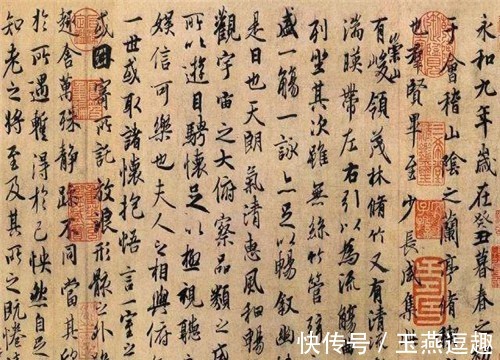 永和九年歲在癸丑暮春
于會稽山陰之蘭亭脩
也羣賢畢至少長咸集
有崇山峻領茂林脩竹又有清
湍暎帶左右引以為流
列坐其次雖無絲竹管
盛一觴一詠亦足以暢敘幽
是日也天朗氣清惠風和暢
觀宇宙之大俯察品類之
所以遊目騁懷足以極視聽
娛信可樂也夫人之相與俯
一世或取諸懷抱悟言一室之
或因寄所託放浪形骸之外
趣舍萬殊靜躁不同當其
於所遇暫得於己怏然自
知老之將至及其所之既惓
快传号/玉燕逗趣